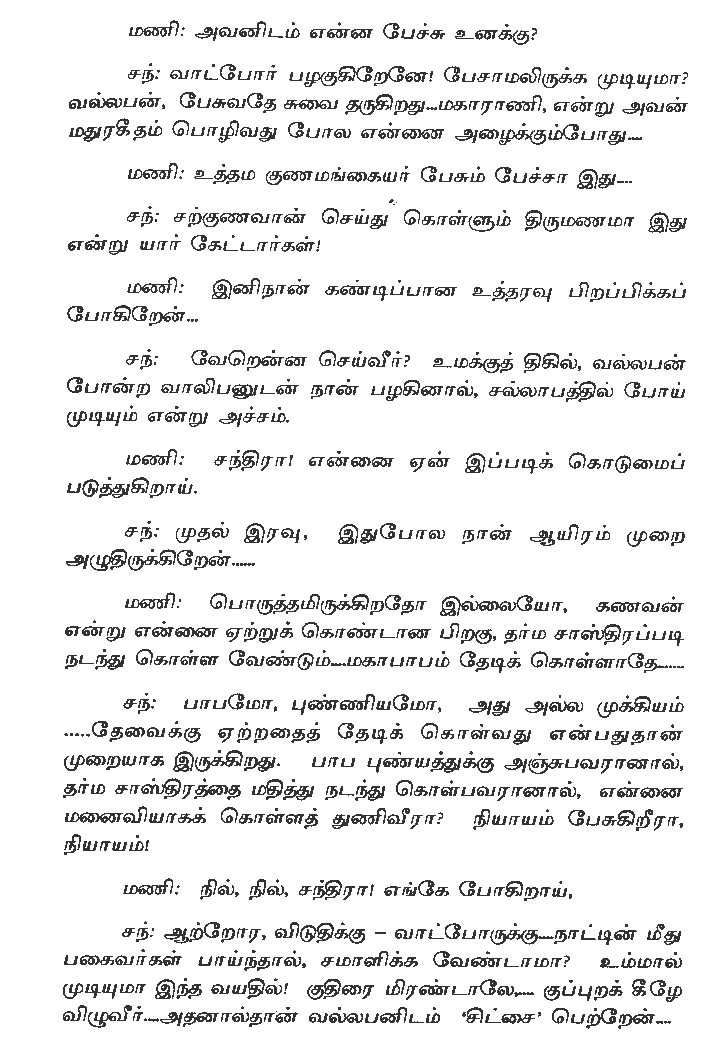 மணி: அவனிடம் என்ன பேச்சு உனக்கு?
சந்: வாட்போர் பழகுகிறேனே! பேசாமலிருக்க முடியுமா?
வல்லபன், பேசுவதே சுவை தருகிறது...மகாராணி, என்று அவன்
மதுரகீதம் பொழிவது போல என்னை அழைக்கும்போது....
மணி: உத்தம குணமங்கையர் பேசும் பேச்சா இது....
சந்: சற்குணவான் செய்து கொள்ளும் திருமணமா இது
என்று யார் கேட்டார்கள்!
மணி: இனிநான் கண்டிப்பான உத்தரவு பிறப்பிக்கப்
போகிறேன்...
சந்: வேறென்ன செய்வீர்? உமக்குத் திகில், வல்லபன்
போன்ற வாலிபனுடன் நான் பழகினால், சல்லாபத்தில் போய்
முடியும் என்று அச்சம்.
மணி: சந்திரா! என்னை ஏன் இப்படிக் கொடுமைப்
படுத்துகிறாய்.
சந்: முதல் இரவு, இதுபோல நான் ஆயிரம் முறை
அழுதிருக்கிறேன்......
மணி: பொருத்தமிருக்கிறதோ இல்லையோ, கணவன்
என்று என்னை ஏற்றுக் கொண்டான பிறகு, தர்ம சாஸ்திரப்படி
நடந்து கொள்ள வேண்டும்....மகாபாபம் தேடிக் கொள்ளாதே.......
சந்: பாபமோ, புண்ணியமோ, அது அல்ல முக்கியம்
.....தேவைக்கு ஏற்றதைத் தேடிக் கொள்வது என்பதுதான்
முறையாக இருக்கிறது. பாப புண்யத்துக்கு அஞ்சுபவரானால்,
தர்ம சாஸ்திரத்தை மதித்து நடந்து கொள்பவரானால், என்னை
மனைவியாகக் கொள்ளத் துணிவீரா? நியாயம் பேசுகிறீரா,
நியாயம்!
மணி: நில், நில், சந்திரா! எங்கே போகிறாய்,
சந்: ஆற்றோர, விடுதிக்கு – வாட்போருக்கு....நாட்டின் மீது
பகைவர்கள் பாய்ந்தால், சமாளிக்க வேண்டாமா? உம்மால்
முடியுமா இந்த வயதில்! குதிரை மிரண்டாலே,..... குப்புறக் கீழே
விழுவீர்....அதனால்தான் வல்லபனிடம் ‘சிட்சை’ பெற்றேன்....